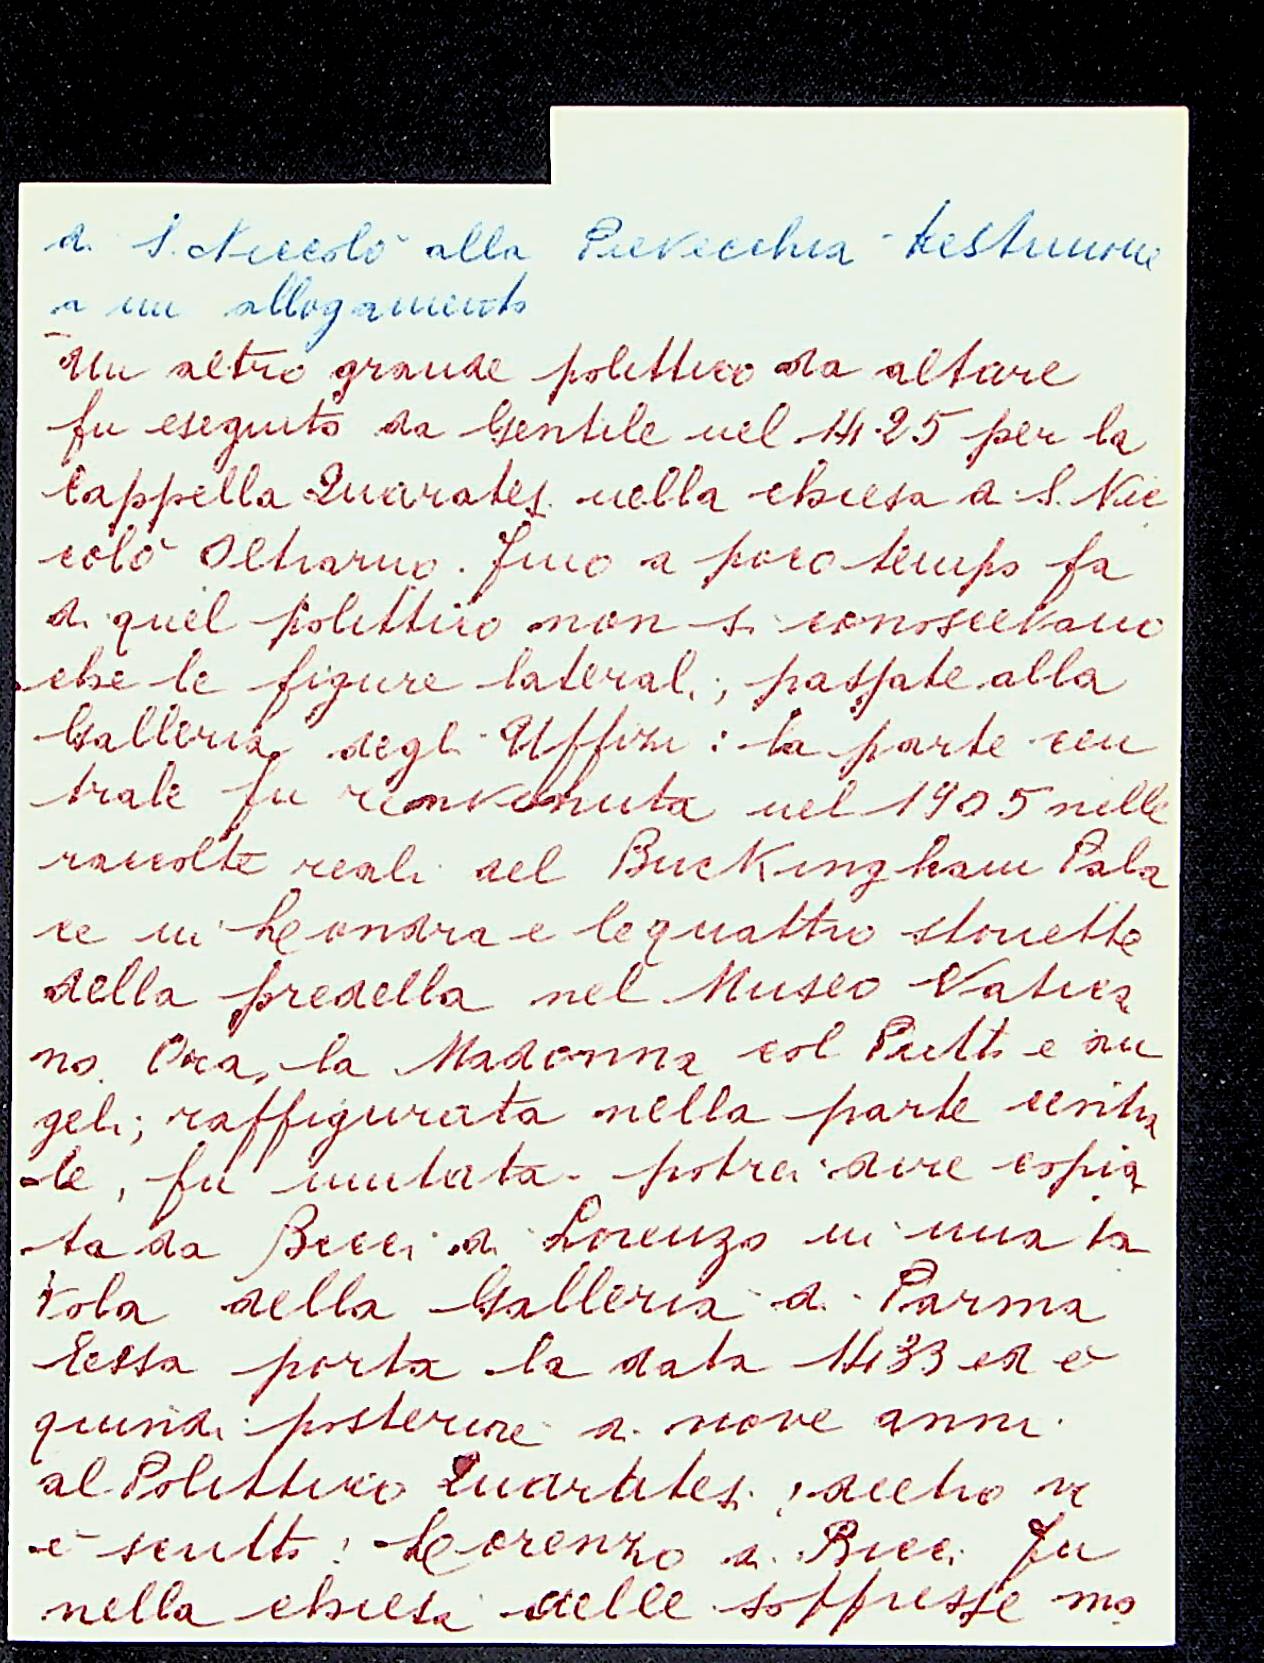 di S. Niccolò alla Pievecchia - testimone
a un allogamento
Un altro grande polittico da altare
fu eseguito da Gentile nel 1425 per la
Cappella Quaratesi nella chiesa di S. Nic
colò Oltrarno. Fino a poco tempo fa
di quel polittico non si conoscevano
che le figure laterali, passate alla
Galleria degli Uffizi: la parte cen
trale fu rinvenuta nel 1905 nelle
raccolte reali del Buckingham Pala
ce in Londra e le quattro storiette
della predella nel Museo Vatica
no. Ora, la Madonna col Putto e an
geli; raffigurata nella parte centra
le, fu imitata - potrei dire copia
ta da Bicci di Lorenzo in una ta
vola della Galleria di Parma
Eessa porta la data 1433 ed è
quindi posteriore di nove anni
al Polittico Quaratesi; dietro vi
è scritto: Lorenzo di Bicci Fu
nella chiesa delle soppresse mo